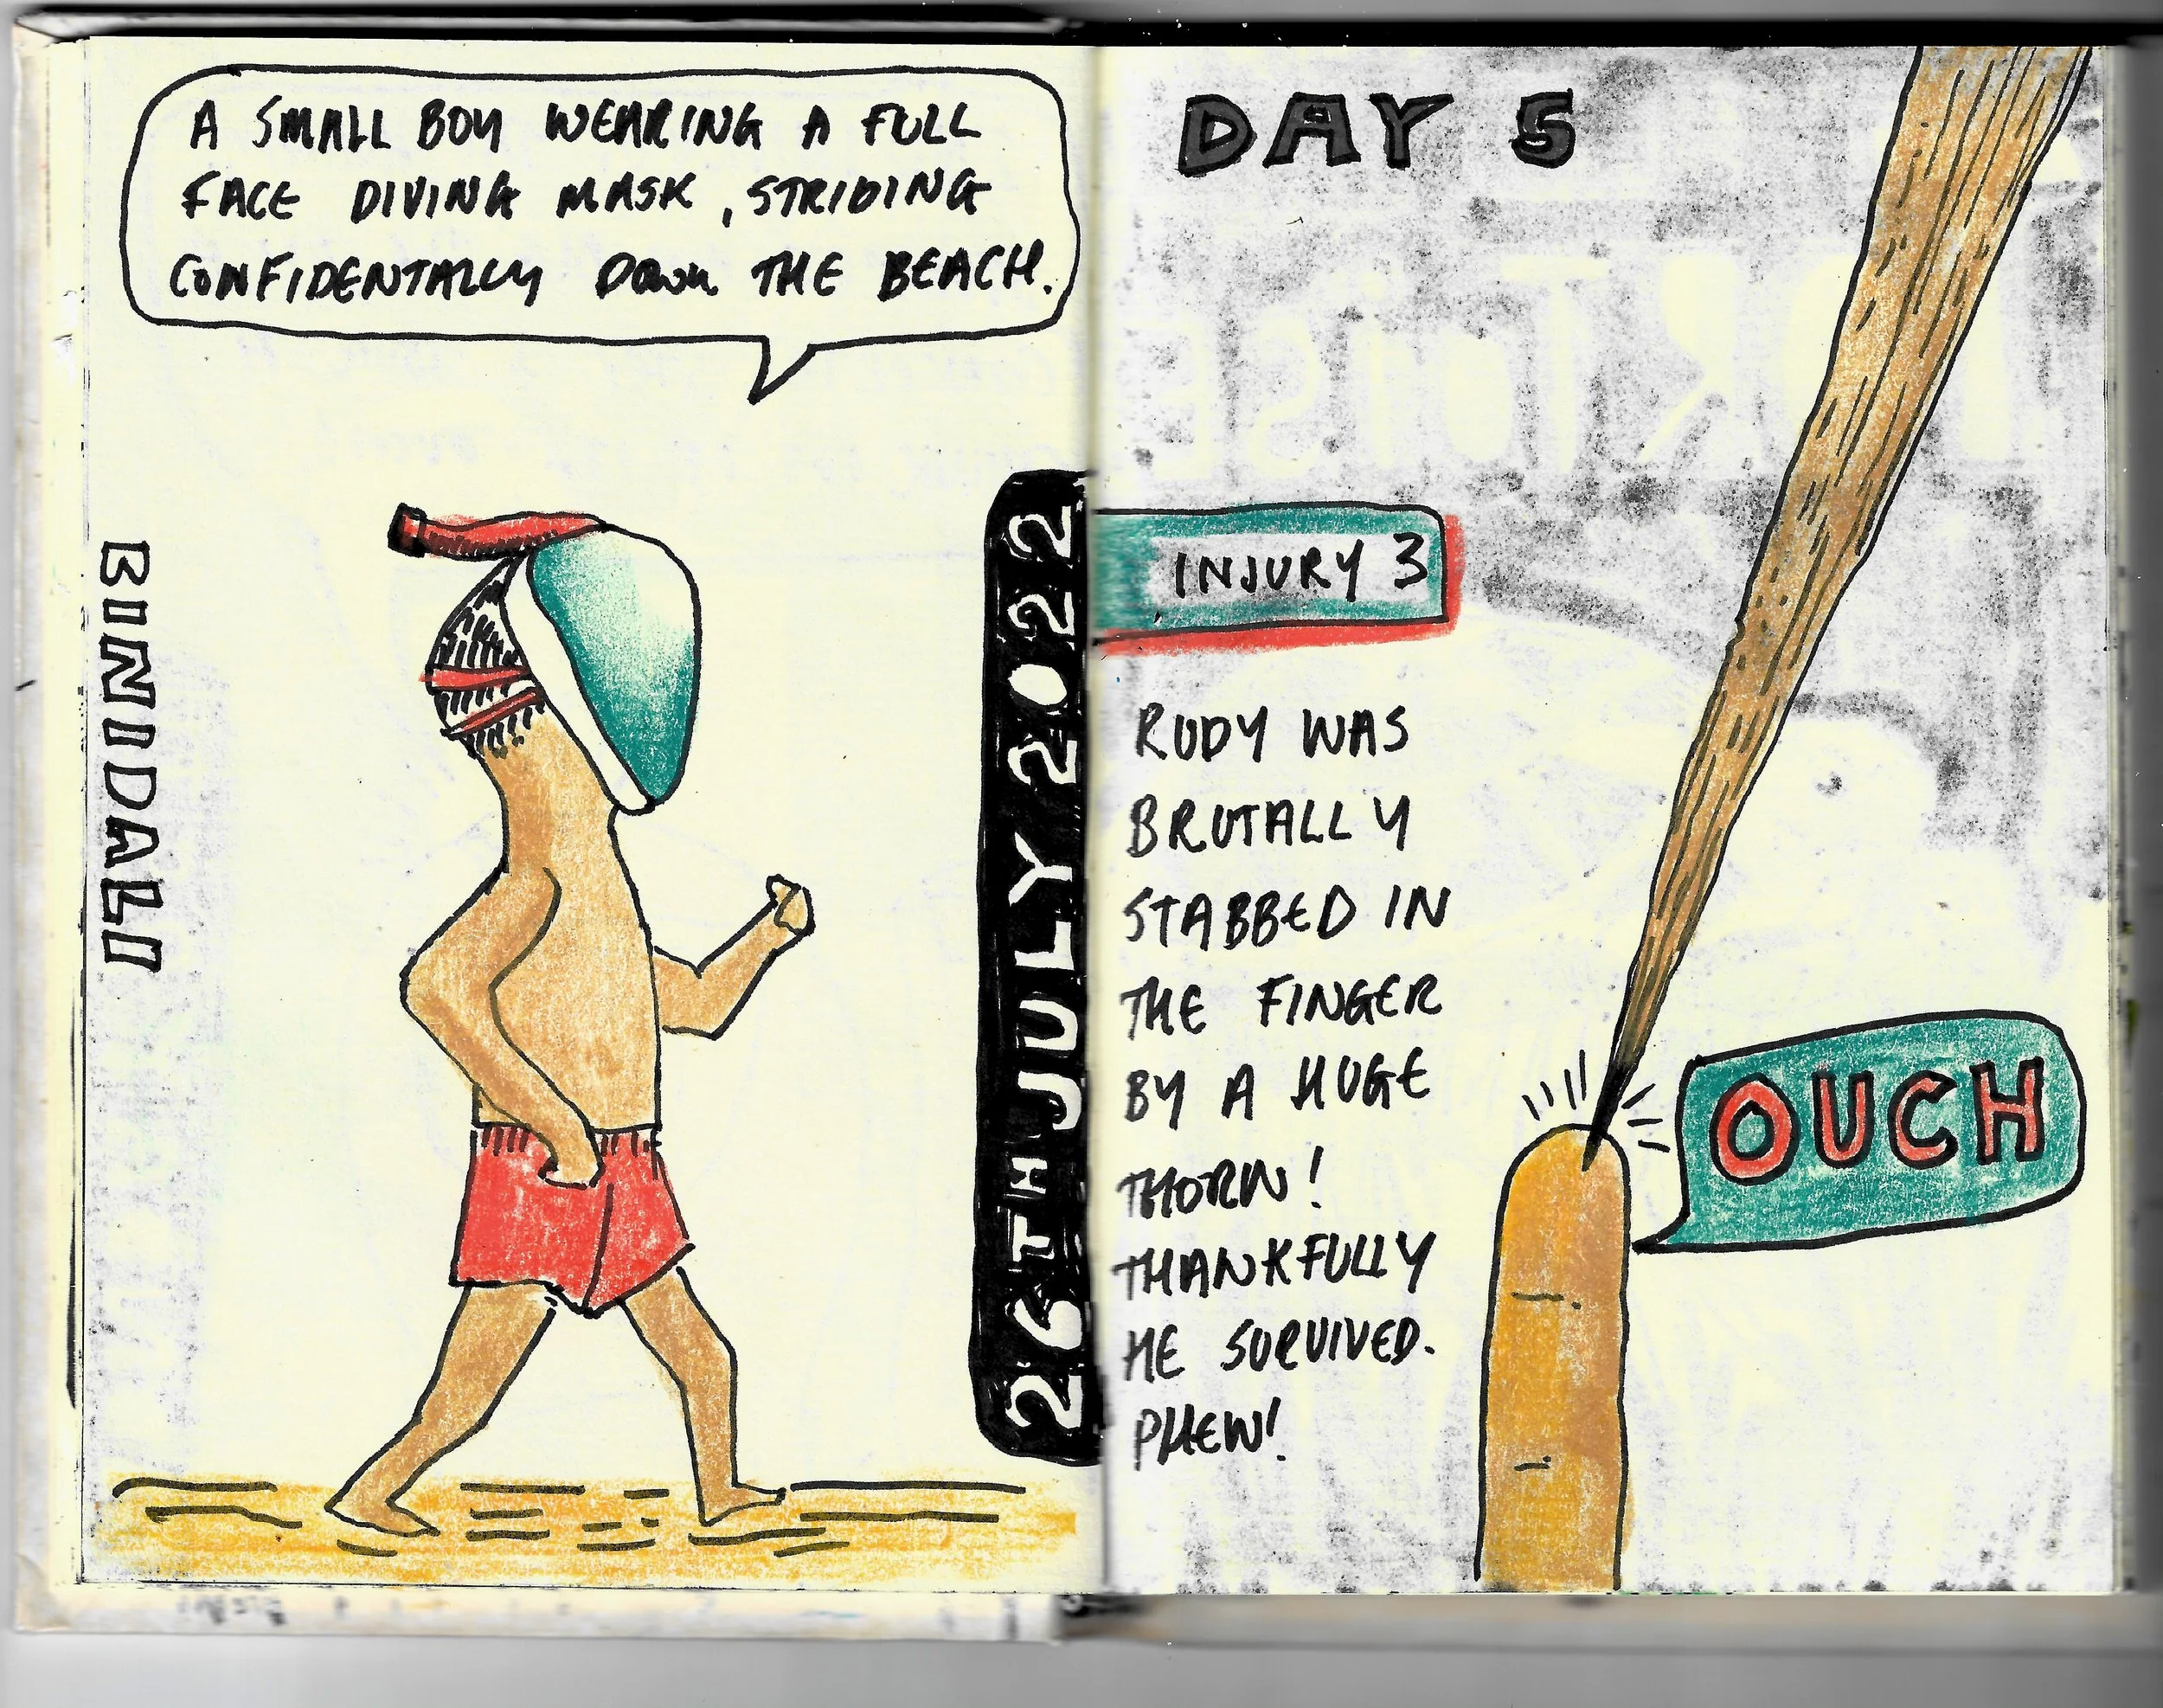 A SMALL BOY WEARING A FULL
FACE DIVING MASK, STRIDING
CONFIDENTALLY DOWN THE BEACH.
BINIDALI
26TH JULY 2022
DAY 5
INJURY 3
RUDY WAS
BRUTALLY
STABBED IN
THE FINGER
BY A HUGE
THORN!
THANKFULLY
HE SURVIVED.
PHEW!
OUCH